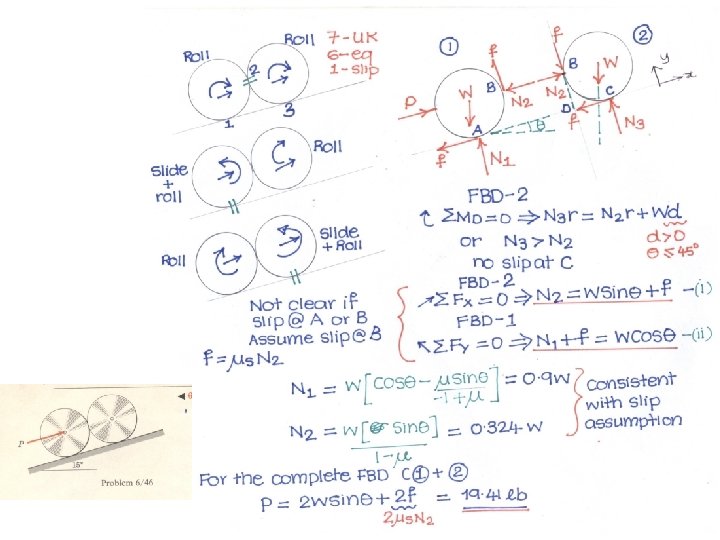 Roll
Roll
7-UK
6-eq
1-slip
2
1
3
Slide
+
roll
Roll
Roll
Slide
+ Roll
Not clear if
slip @ A or B
Assume slip@B
f=μsN2
1
2
P
W
B
f
N2
A
f
N1
θ
f
B
W
N2
C
D
f
N3
y
x
FBD-2
ΣMD=0 ⇒ N3r = N2r + Wd
or N3 > N2
d>0
θ≤45°
no slip at C
FBD-2
ΣFx=0 ⇒ N2=Wsinθ+f -(i)
FBD-1
ΣFy=0 ⇒ N1+f = Wcosθ -(ii)
N1 = W[cosθ - μsinθ/-1+μ] = 0.9W
N2 = W[sinθ]/1-μ = 0.324W
Consistent
with slip
assumption
For the complete FBD C①+②
P = 2Wsinθ + 2f = 19.41 lb
2μsN2
P
15°
Problem 6/46